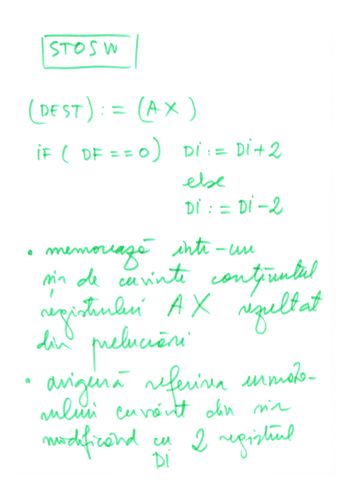 STOSW
(DEST) := (AX)
IF ( DF == 0) DI := DI+2
else
DI := DI-2
• memorează într-un
șir de cuvinte conținutul
registrului AX rezultat
din prelucrări
• asigură referirea următo-
rului cuvânt din șir
modificând cu 2 registrul
DI